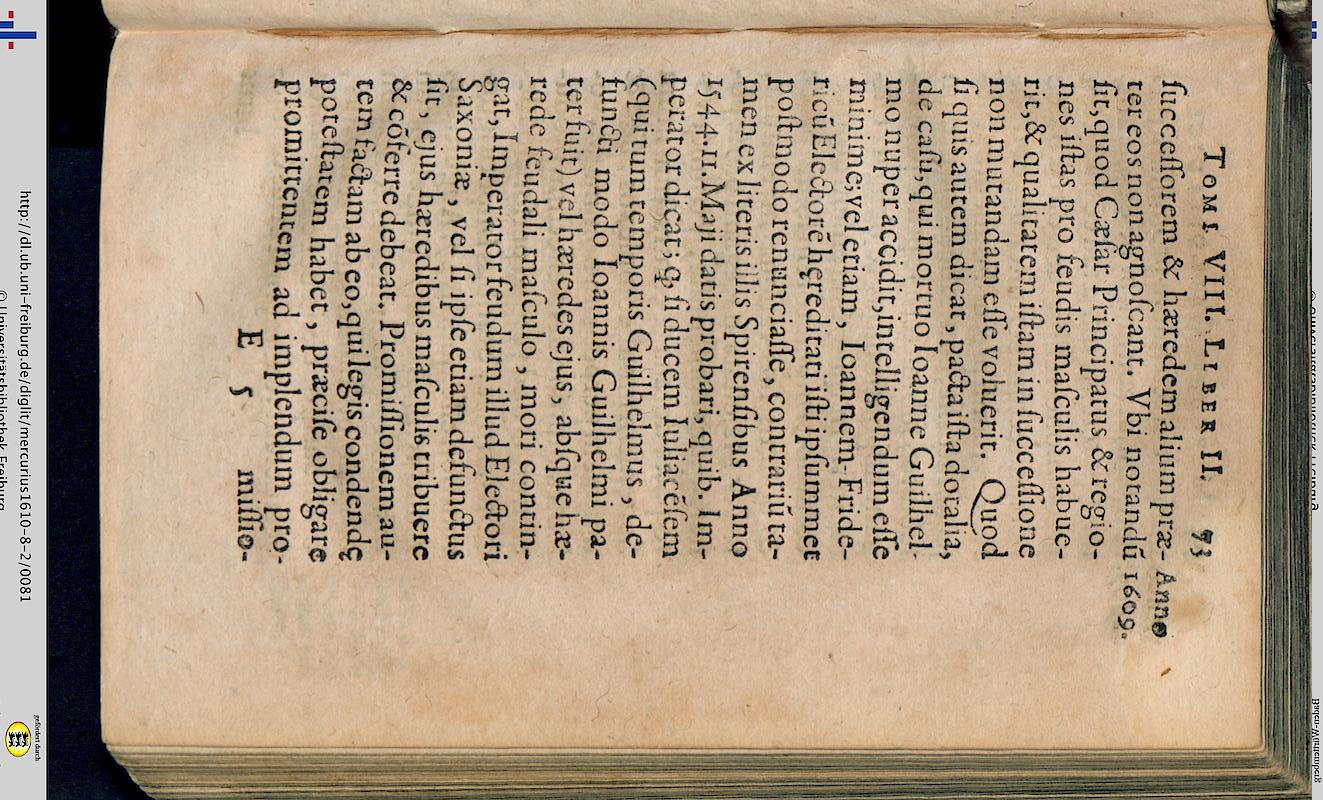 TOMI VIII. LIBER II. 73
ſucceſſorem & hæredem alium præ- Anno
ter eos non agnoſcant. Vbi notandũ 1609.
ſit, quod Cæſar Principatus & regio-
nes iſtas pro feudis maſculis habue-
rit, & qualitatem iſtam in ſucceſſione
non mutandam eſſe voluerit. Quod
ſi quis autem dicat, pacta iſta dotalia,
de caſu, qui mortuo Ioanne Guilhel-
mo nuper accidit, intelligendum eſſe
minime; vel etiam, Ioannem-Fride-
ricũ Electorẽ hęreditati iſti ipſummet
poſtmodo renunciaſſe, contrariũ ta-
men ex literis illis Spirenſibus Anno
1544. 11. Maji datis probari, quib. Im-
perator dicat; ꝙ, ſi ducem Iuliacẽſem
(qui tum temporis Guilhelmus, de-
functi modo Ioannis Guilhelmi pa-
ter fuit) vel hæredes ejus, abſque hæ-
rede feudali maſculo, mori contin-
gat, Imperator feudum illud Electori
Saxoniæ, vel ſi ipſe etiam defunctus
ſit, ejus hæredibus maſculis tribuere
& cõferre debeat. Promiſſionem au-
tem factam ab eo, qui legis condendę
poteſtatem habet, præciſe obligare
promittentem ad implendum pro-
E 5 miſſio-
http://dl.ub.uni-freiburg.de/diglit/mercurius1610-8-2/0081
© Universitätsbibliothek Freiburg
gefördert durch